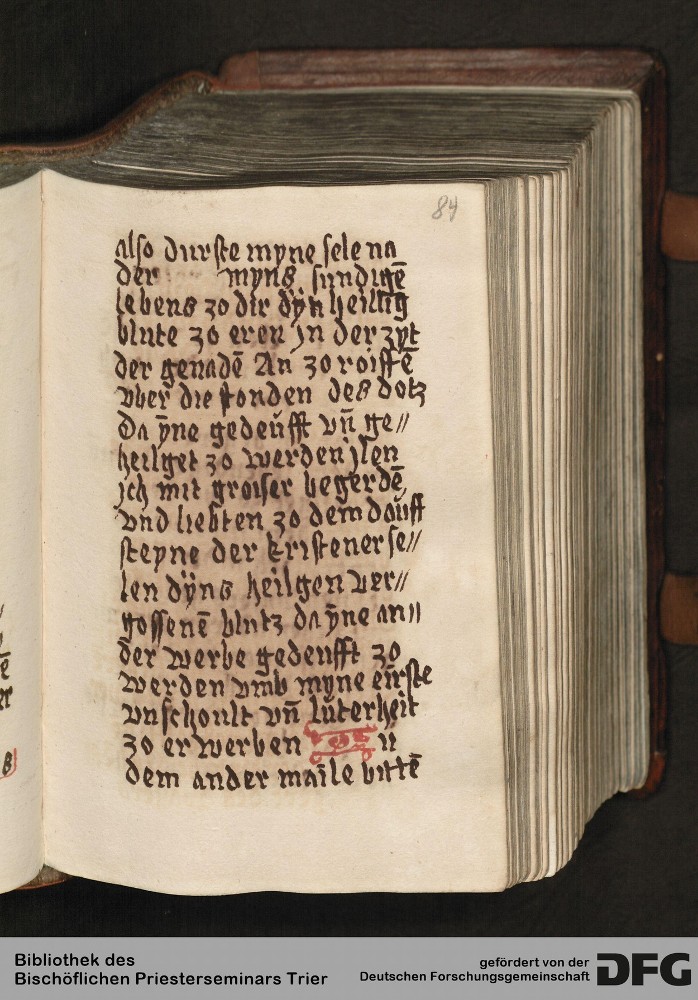 84
also durste myne sele na
der myns sundigē
lebens zo dir dÿn heillig
blute zo eren jn der zyt
der genadē An zo roiffē
vber die stonden des dotz
Da ÿne gedeufft vn̄ ge//
heilget zo werden jlen
jch mit groiser begerdē
vnd liebten zo dem dauff
steyne der kristener se//
len dÿns heilgen ver//
gossenē blutz da ÿne an//
der werbe gedeufft zo
werden vmb myne eirste
vnschoult vn̄ luterheit
zo er werben
dem ander maile bittē
ē
er
B
Bibliothek des
Bischöflichen Priesterseminars Trier
gefördert von der
Deutschen Forschungsgemeinschaft
DFG